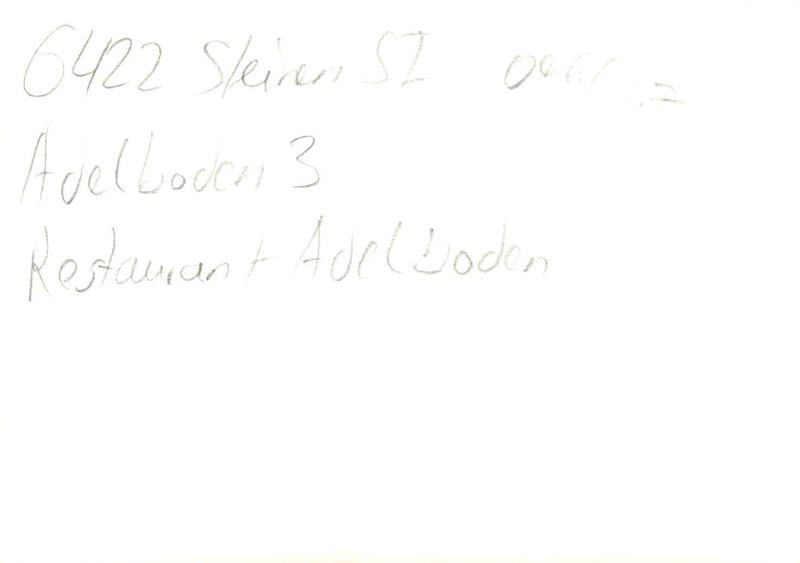 6422 Steinen SZ
Adelboden 3
Restaurant Adelboden